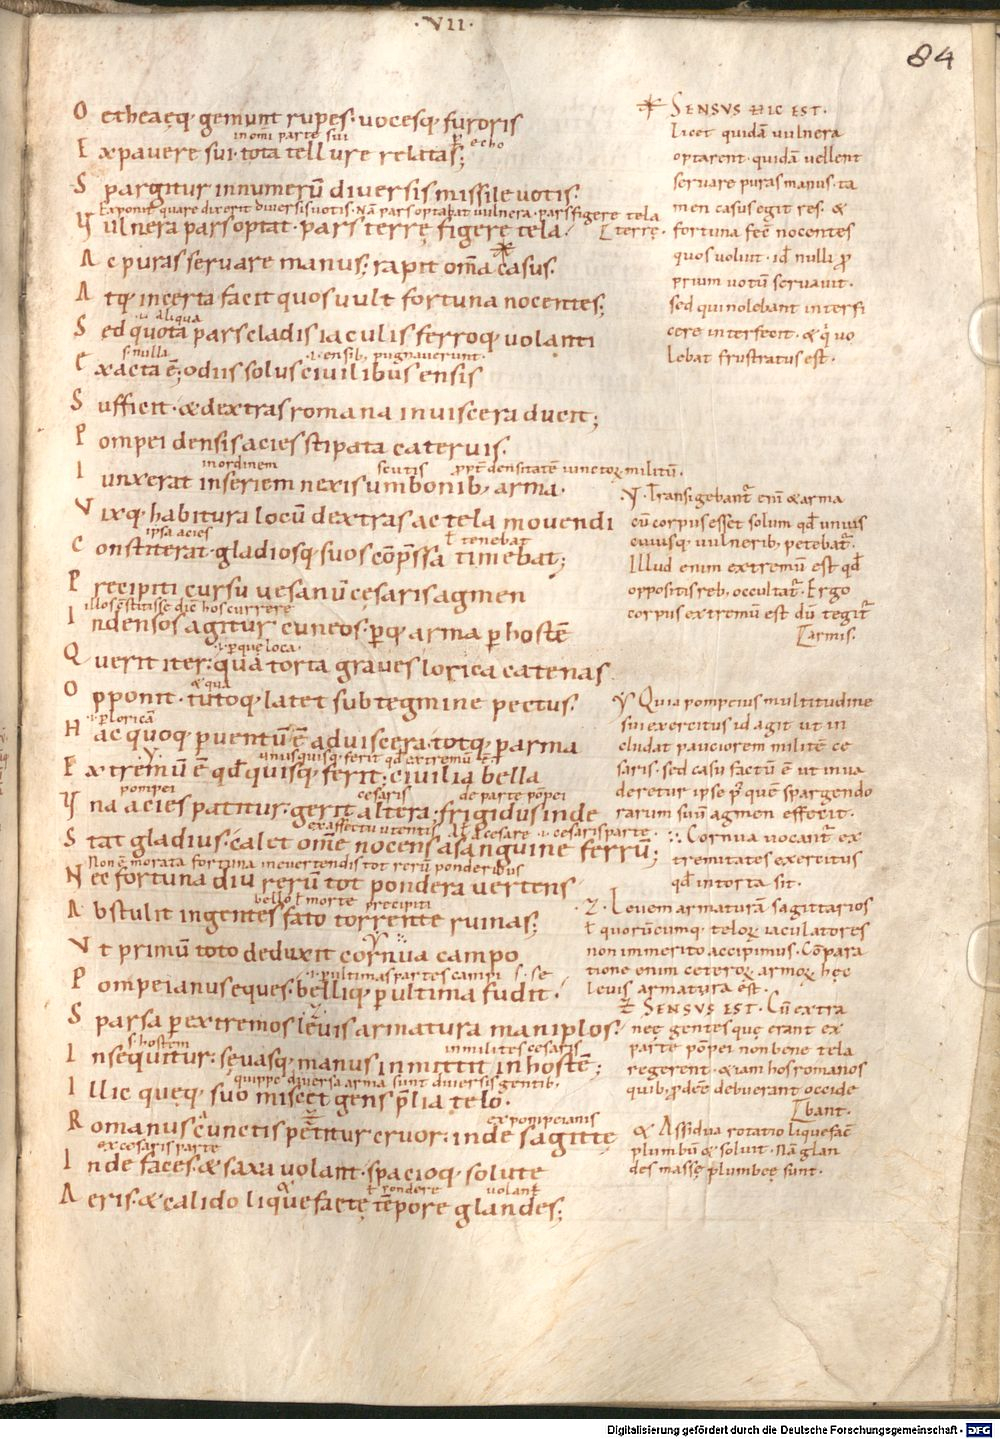 ·VII·
84
O etheaeq; gemunt rupes· uocesq; furoris
in omi parte sui p echo
E xpauere sui· tota tellure relatas;
S pargitur innumerū diuersis missile uotis·
Exponit quare dixerit diuersis uotis· Nā pars optabat uulnera· pars figere tela
V ulnera pars optat· pars terrę figere tela· terrę·
A c puras seruare manus; rapit om̄a casus·
A tq; incerta facit quos uult fortuna nocentes;
aliqua
S ed quota pars cladis iaculis ferroq; uolanti
s· nulla ·i· ensib; pugnauerunt·
E xacta ē; odiis solus ciuilibus ensis
S ufficit· & dextras romana in uiscera ducit;
P ompei densis acies stipata cateruis·
in ordinem scutis ppt̄ densitatē iunctoꝝ militū·
I unxerat in seriem nexis umbonib; arma·
V ixq; habitura locū dextras ac tela mouendi
ipsa acies ł tenebat
C onstiterat· gladiosq; suos cōp̄ssa timebat;
P recipiti cursu uesanū cęsaris agmen
illos stetisse dic̄ hos currere
I n densos agitur cuneos· ꝑq; arma ꝑ hostē
·i· ꝑque loca·
Q uerit iter· qua torta graues lorica catenas
& qua
O pponit· tutoq; latet sub tegmine pectus·
·i· ꝑ loricā
H ac quoq; ꝑuentū ē ad uiscera· totq; ꝑ arma
unusquisq; ferit qd̄ extremū ē
E xtremū ē qd̄ quisq; ferit; ciuilia bella
pompei cesaris de parte pōpei
V na acies patitur· gerit altera; frigidus inde
ex affectu utentis Al· a cesare ·i· cesaris parte·
S tat gladius· calet om̄e nocens a sanguine ferrū;
Non ē morata fortuna in euertendis tot rerū ponderibus
N ec fortuna diu rerū tot pondera uertens
bello ł morte precipiti
A bstulit ingentes fato torrente ruinas;
V t primū toto deduxit cornua campo
·i· ꝑ ultimas partes campi s· se
P ompeianus eques· belliq; ꝑ ultima fudit·
S parsa ꝑ extremos leuis armatura maniplos·
s· hostem in milites cesaris
I nsequitur· sęuasq; manus inmittit in hostē;
quippe diuersa arma sunt diuersis gentib;
I llic quęq; suo miscet gens p̄lia tęlo·
ex pompeianis
R omanus cunctis petitur cruor· inde sagittę
ex cesaris parte
I nde faces· & saxa uolant· spacioq; solute
ł pondere uolant
A eris· & calido liquefactę tēpore glandes;
SENSVS HIC EST·
licet quidā uulnera
optarent· quidā uellent
seruare puras manus· ta
men casus egit res· &
fortuna fec̄ nocentes
quos uoluit· id̄ nulli pro
prium uotū seruauit·
sed qui nolebant interfi
cere interfecit· & q̄ uo
lebat frustratus est·
Transigebant̄ eni & arma
cū corpus esset solum qd̄ unius
cuiusq; uulnerib; petebat̄·
Illud enim extremū est qd̄
oppositis reb; occultat̄· Ergo
corpus extremū est dū tegit̄
armis·
Quia pompeius multitudine
sui exercitus id agit ut in
cludat pauciorem militē ce
saris· sed casu factū ē ut inua
deretur ipse p̄ quē spargendo
rarum suū agmen effecit·
Cornua uocant̄ ex
tremitates exercitus
qd̄ intorta sit·
Z· Leuem armaturā sagittarios
ł quorūcumq; teloꝝ iaculatores
non immerito accipimus· Cōpara
tione enim ceteroꝝ armoꝝ hęc
leuis armatura est·
SENSVS EST· Cū extra
neę gentes quę erant ex
parte pōpei non bene tela
regerent· & iam hos romanos
quib; ꝓdēe debuerant occide
bant·
& Assidua rotatio liquefac̄
plumbū & soluit· Nā glan
des massę plumbeę sunt·
Digitalisierung gefördert durch die Deutsche Forschungsgemeinschaft - DFG